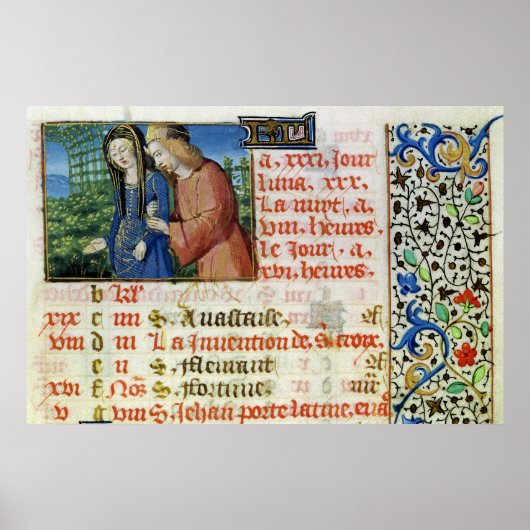 a, xxxi, jour
luna, xxx,
La nuyt, a
viii, heures,
le jour, a
xvi, heures,
b kl
xix c iiii S. Anastaise,
viii d iii La Invention de, S. croix,
e ii S.
xvi f Noȝ S. fortune,
v g viii S. Jehan porte latine,